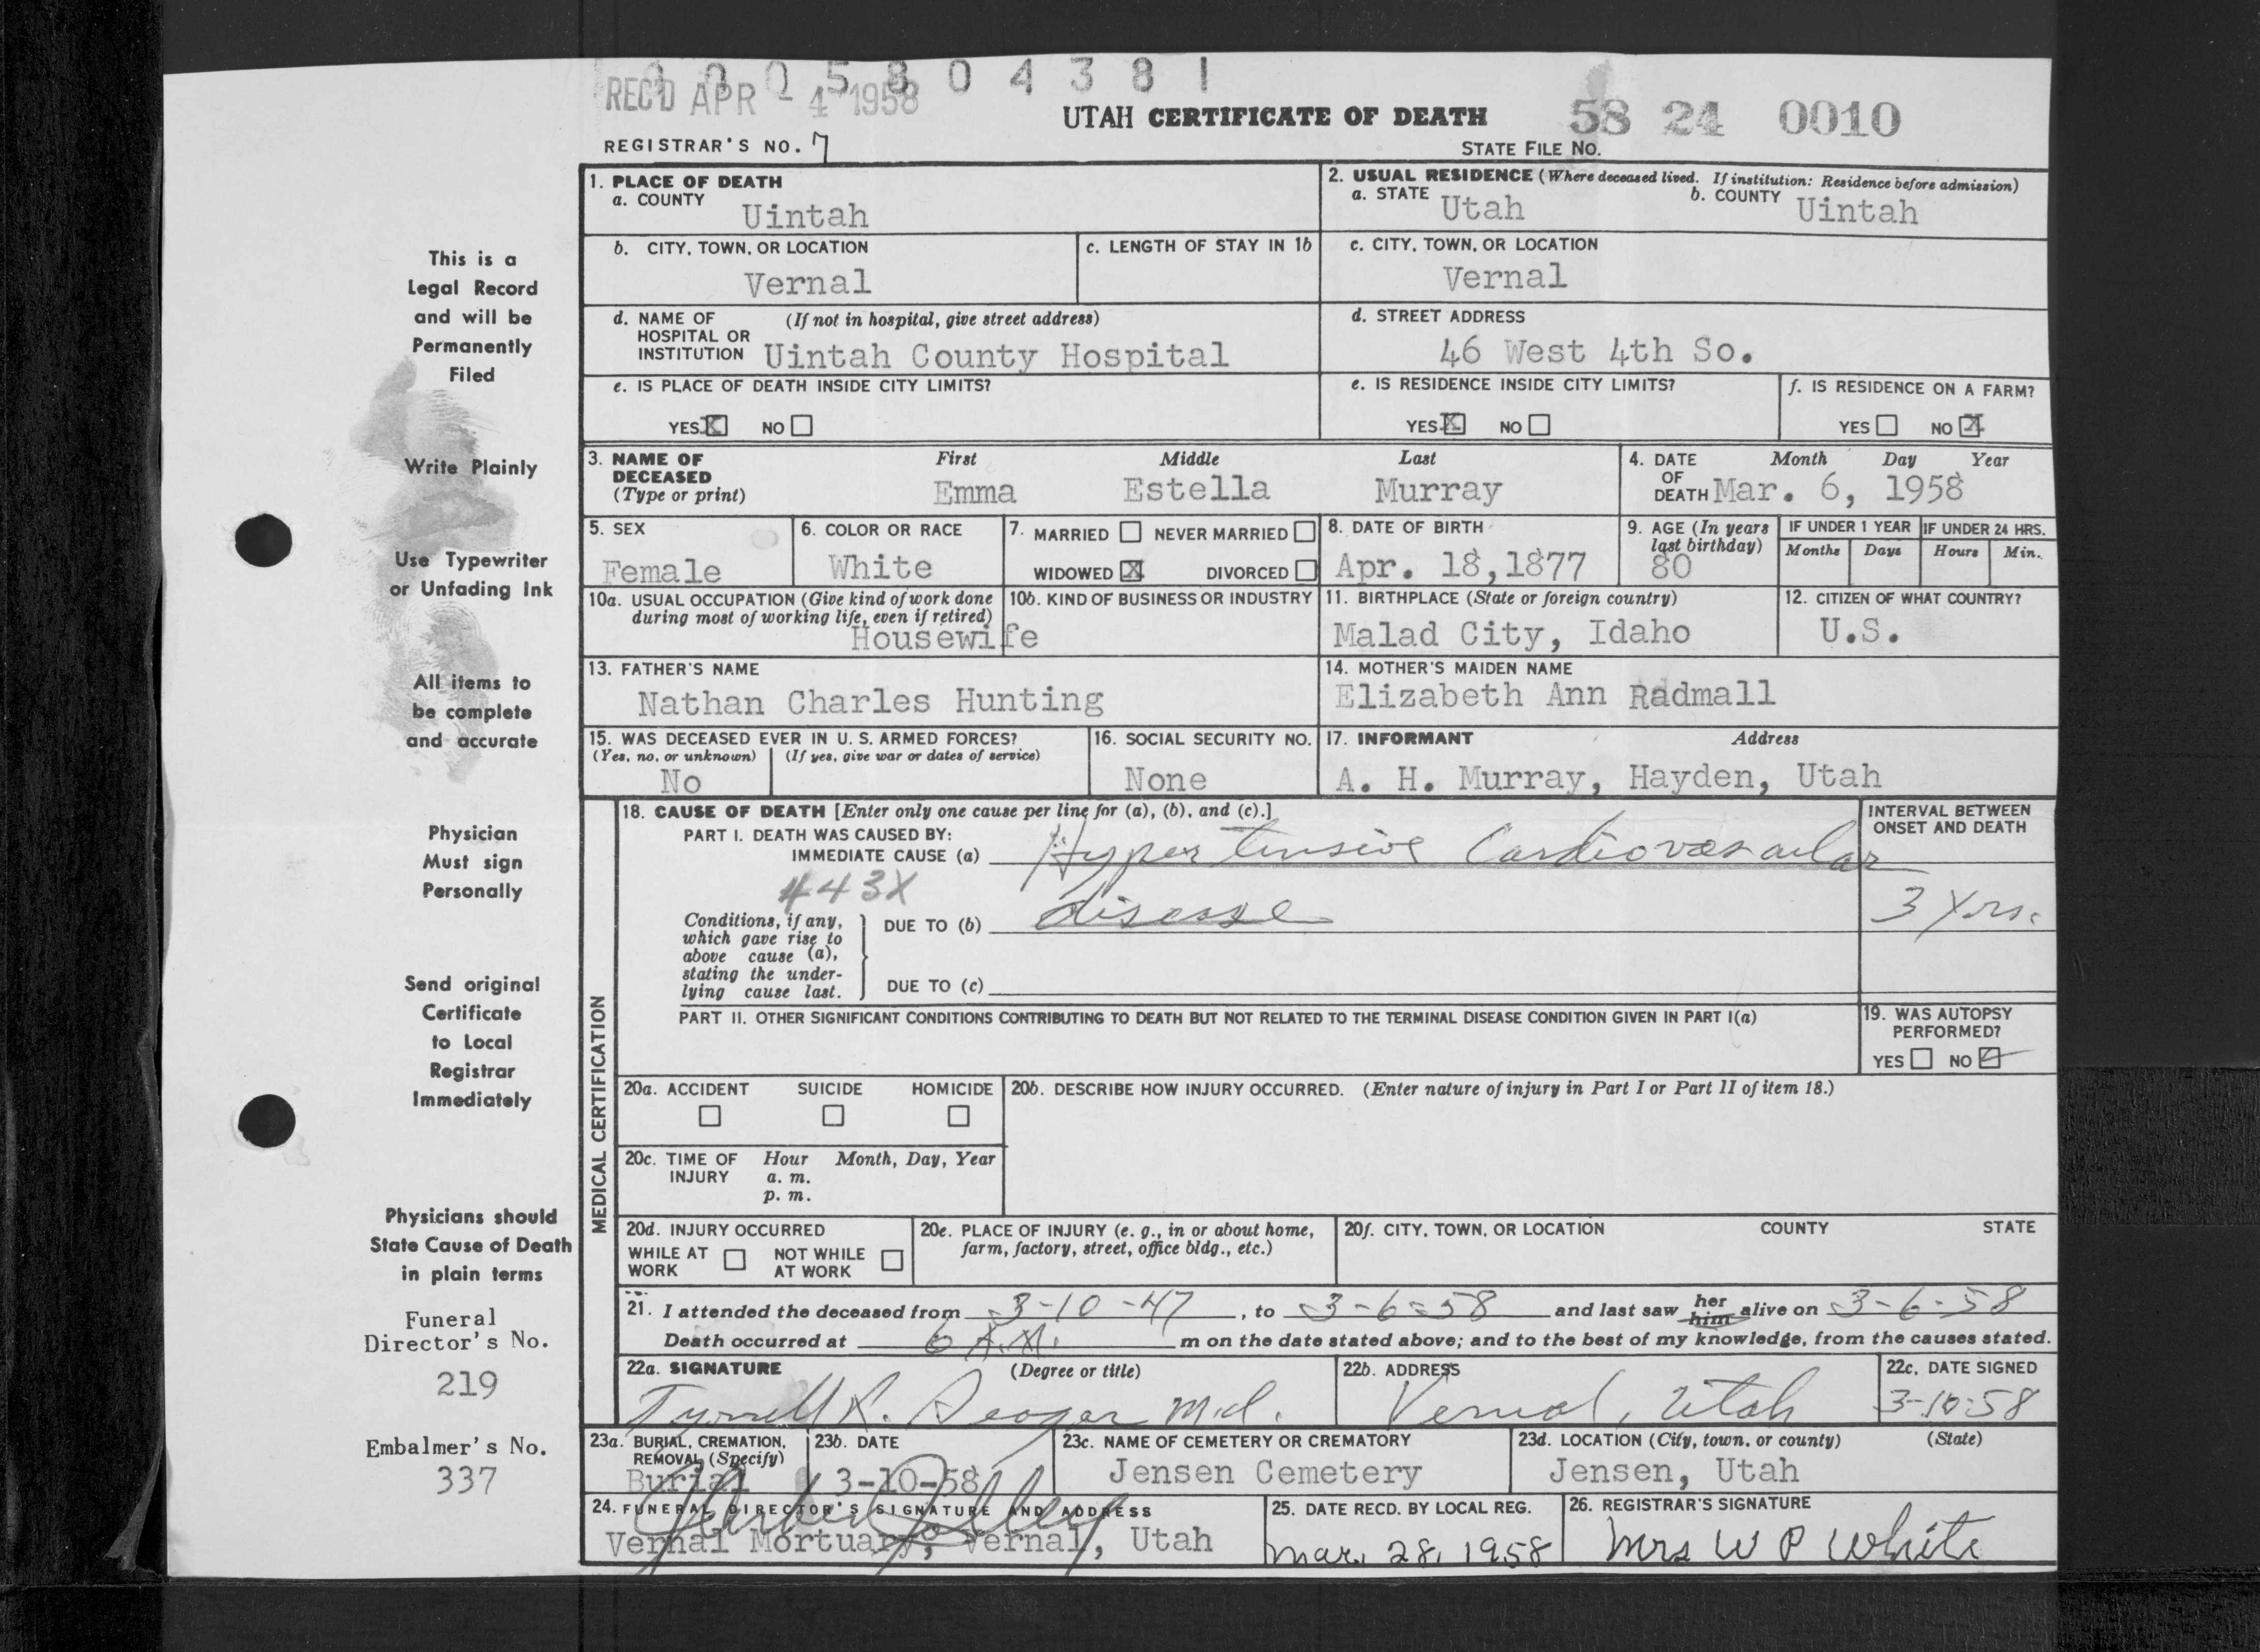 1005804381
REC'D APR - 4 1958
UTAH CERTIFICATE OF DEATH
58 24 0010
REGISTRAR'S NO. 7
STATE FILE NO.
This is a
Legal Record
and will be
Permanently
Filed
Write Plainly
Use Typewriter
or Unfading Ink
All items to
be complete
and accurate
Physician
Must sign
Personally
Send original
Certificate
to Local
Registrar
Immediately
Physicians should
State Cause of Death
in plain terms
Funeral
Director's No.
219
Embalmer's No.
337
1. PLACE OF DEATH
a. COUNTY Uintah
2. USUAL RESIDENCE (Where deceased lived. If institution: Residence before admission)
a. STATE Utah b. COUNTY Uintah
b. CITY, TOWN, OR LOCATION
Vernal
c. LENGTH OF STAY IN 1b
c. CITY, TOWN, OR LOCATION
Vernal
d. NAME OF (If not in hospital, give street address)
HOSPITAL OR
INSTITUTION Uintah County Hospital
d. STREET ADDRESS
46 West 4th So.
e. IS PLACE OF DEATH INSIDE CITY LIMITS?
YES X NO
e. IS RESIDENCE INSIDE CITY LIMITS?
YES X NO
f. IS RESIDENCE ON A FARM?
YES NO X
3. NAME OF First Middle Last
DECEASED
(Type or print) Emma Estella Murray
4. DATE Month Day Year
OF
DEATH Mar. 6, 1958
5. SEX
Female
6. COLOR OR RACE
White
7. MARRIED NEVER MARRIED
WIDOWED X DIVORCED
8. DATE OF BIRTH
Apr. 18,1877
9. AGE (In years
last birthday)
80
IF UNDER 1 YEAR IF UNDER 24 HRS.
Months Days Hours Min.
10a. USUAL OCCUPATION (Give kind of work done
during most of working life, even if retired)
Housewife
10b. KIND OF BUSINESS OR INDUSTRY
11. BIRTHPLACE (State or foreign country)
Malad City, Idaho
12. CITIZEN OF WHAT COUNTRY?
U.S.
13. FATHER'S NAME
Nathan Charles Hunting
14. MOTHER'S MAIDEN NAME
Elizabeth Ann Radmall
15. WAS DECEASED EVER IN U. S. ARMED FORCES?
(Yes, no, or unknown) (If yes, give war or dates of service)
No
16. SOCIAL SECURITY NO.
None
17. INFORMANT Address
A. H. Murray, Hayden, Utah
MEDICAL CERTIFICATION
18. CAUSE OF DEATH [Enter only one cause per line for (a), (b), and (c).]
PART I. DEATH WAS CAUSED BY:
IMMEDIATE CAUSE (a) Hypertensive Cardiovascular
443X
Conditions, if any,
which gave rise to
above cause (a),
stating the under-
lying cause last.
DUE TO (b) disease
DUE TO (c)
INTERVAL BETWEEN
ONSET AND DEATH
3 Yrs.
PART II. OTHER SIGNIFICANT CONDITIONS CONTRIBUTING TO DEATH BUT NOT RELATED TO THE TERMINAL DISEASE CONDITION GIVEN IN PART I(a)
19. WAS AUTOPSY
PERFORMED?
YES NO
20a. ACCIDENT SUICIDE HOMICIDE
20b. DESCRIBE HOW INJURY OCCURRED. (Enter nature of injury in Part I or Part II of item 18.)
20c. TIME OF Hour Month, Day, Year
INJURY a. m.
p. m.
20d. INJURY OCCURRED
WHILE AT NOT WHILE
WORK AT WORK
20e. PLACE OF INJURY (e. g., in or about home,
farm, factory, street, office bldg., etc.)
20f. CITY, TOWN, OR LOCATION COUNTY STATE
21. I attended the deceased from 3-10-47, to 3-6-58 and last saw her him alive on 3-6-58
Death occurred at 6 A.M. m on the date stated above; and to the best of my knowledge, from the causes stated.
22a. SIGNATURE (Degree or title)
Tyrrell R. Seager M.d.
22b. ADDRESS
Vernal, Utah
22c. DATE SIGNED
3-10-58
23a. BURIAL, CREMATION,
REMOVAL (Specify)
Burial
23b. DATE
3-10-58
23c. NAME OF CEMETERY OR CREMATORY
Jensen Cemetery
23d. LOCATION (City, town, or county) (State)
Jensen, Utah
24. FUNERAL DIRECTOR'S SIGNATURE AND ADDRESS
Vernal Mortuary, Vernal, Utah
25. DATE RECD. BY LOCAL REG.
Mar. 28, 1958
26. REGISTRAR'S SIGNATURE
Mrs W P White